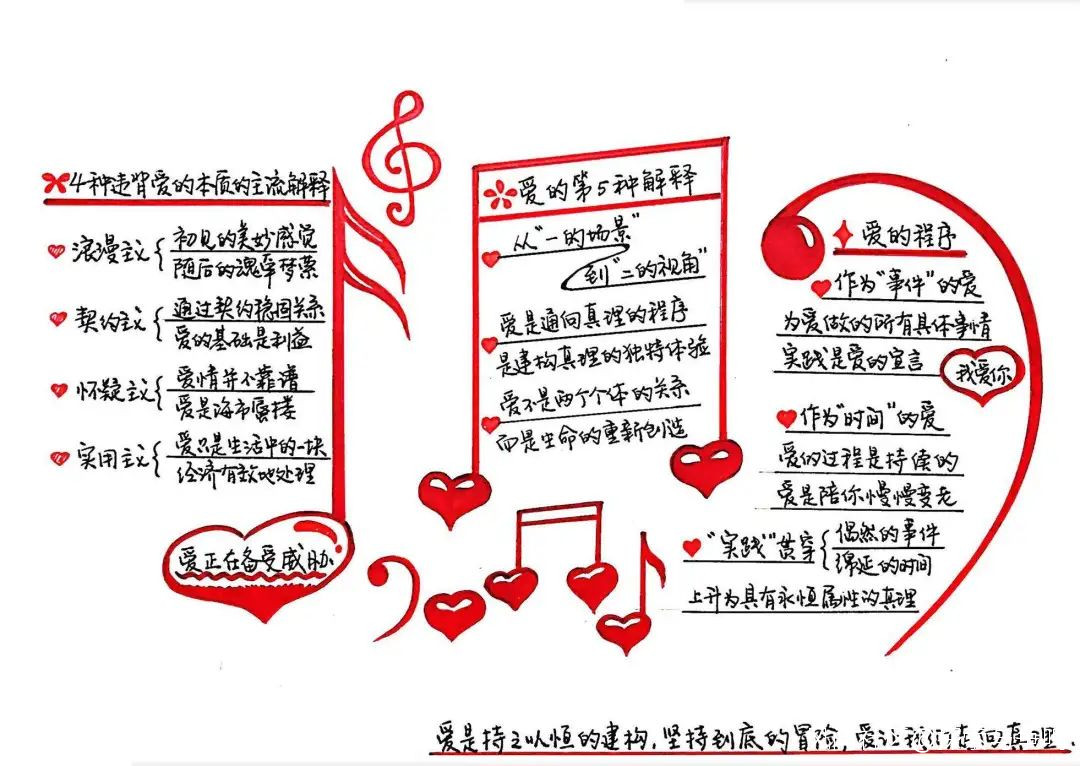 4种违背爱的本质的主流解释
浪漫主义
初见的美妙感觉
随后的魂牵梦萦
契约主义
通过契约稳固关系
爱的基础是利益
怀疑主义
爱情并不靠谱
爱是海市蜃楼
实用主义
爱只是生活中的一块
经济有效地处理
爱正在备受威胁
爱的第5种解释
从"一的场景"
到"二的视角"
爱是通向真理的程序
是建构真理的独特体验
爱不是两个个体的关系
而是生命的重新创造
爱的程序
作为"事件"的爱
为爱做的所有具体事情
实践是爱的宣言
我爱你
作为"时间"的爱
爱的过程是持续的
爱是陪你慢慢变老
"实践"贯穿
偶然的事件
绵延的时间
上升为具有永恒属性的真理
爱是持之以恒的建构,坚持到底的冒险,爱让我们走向真理.